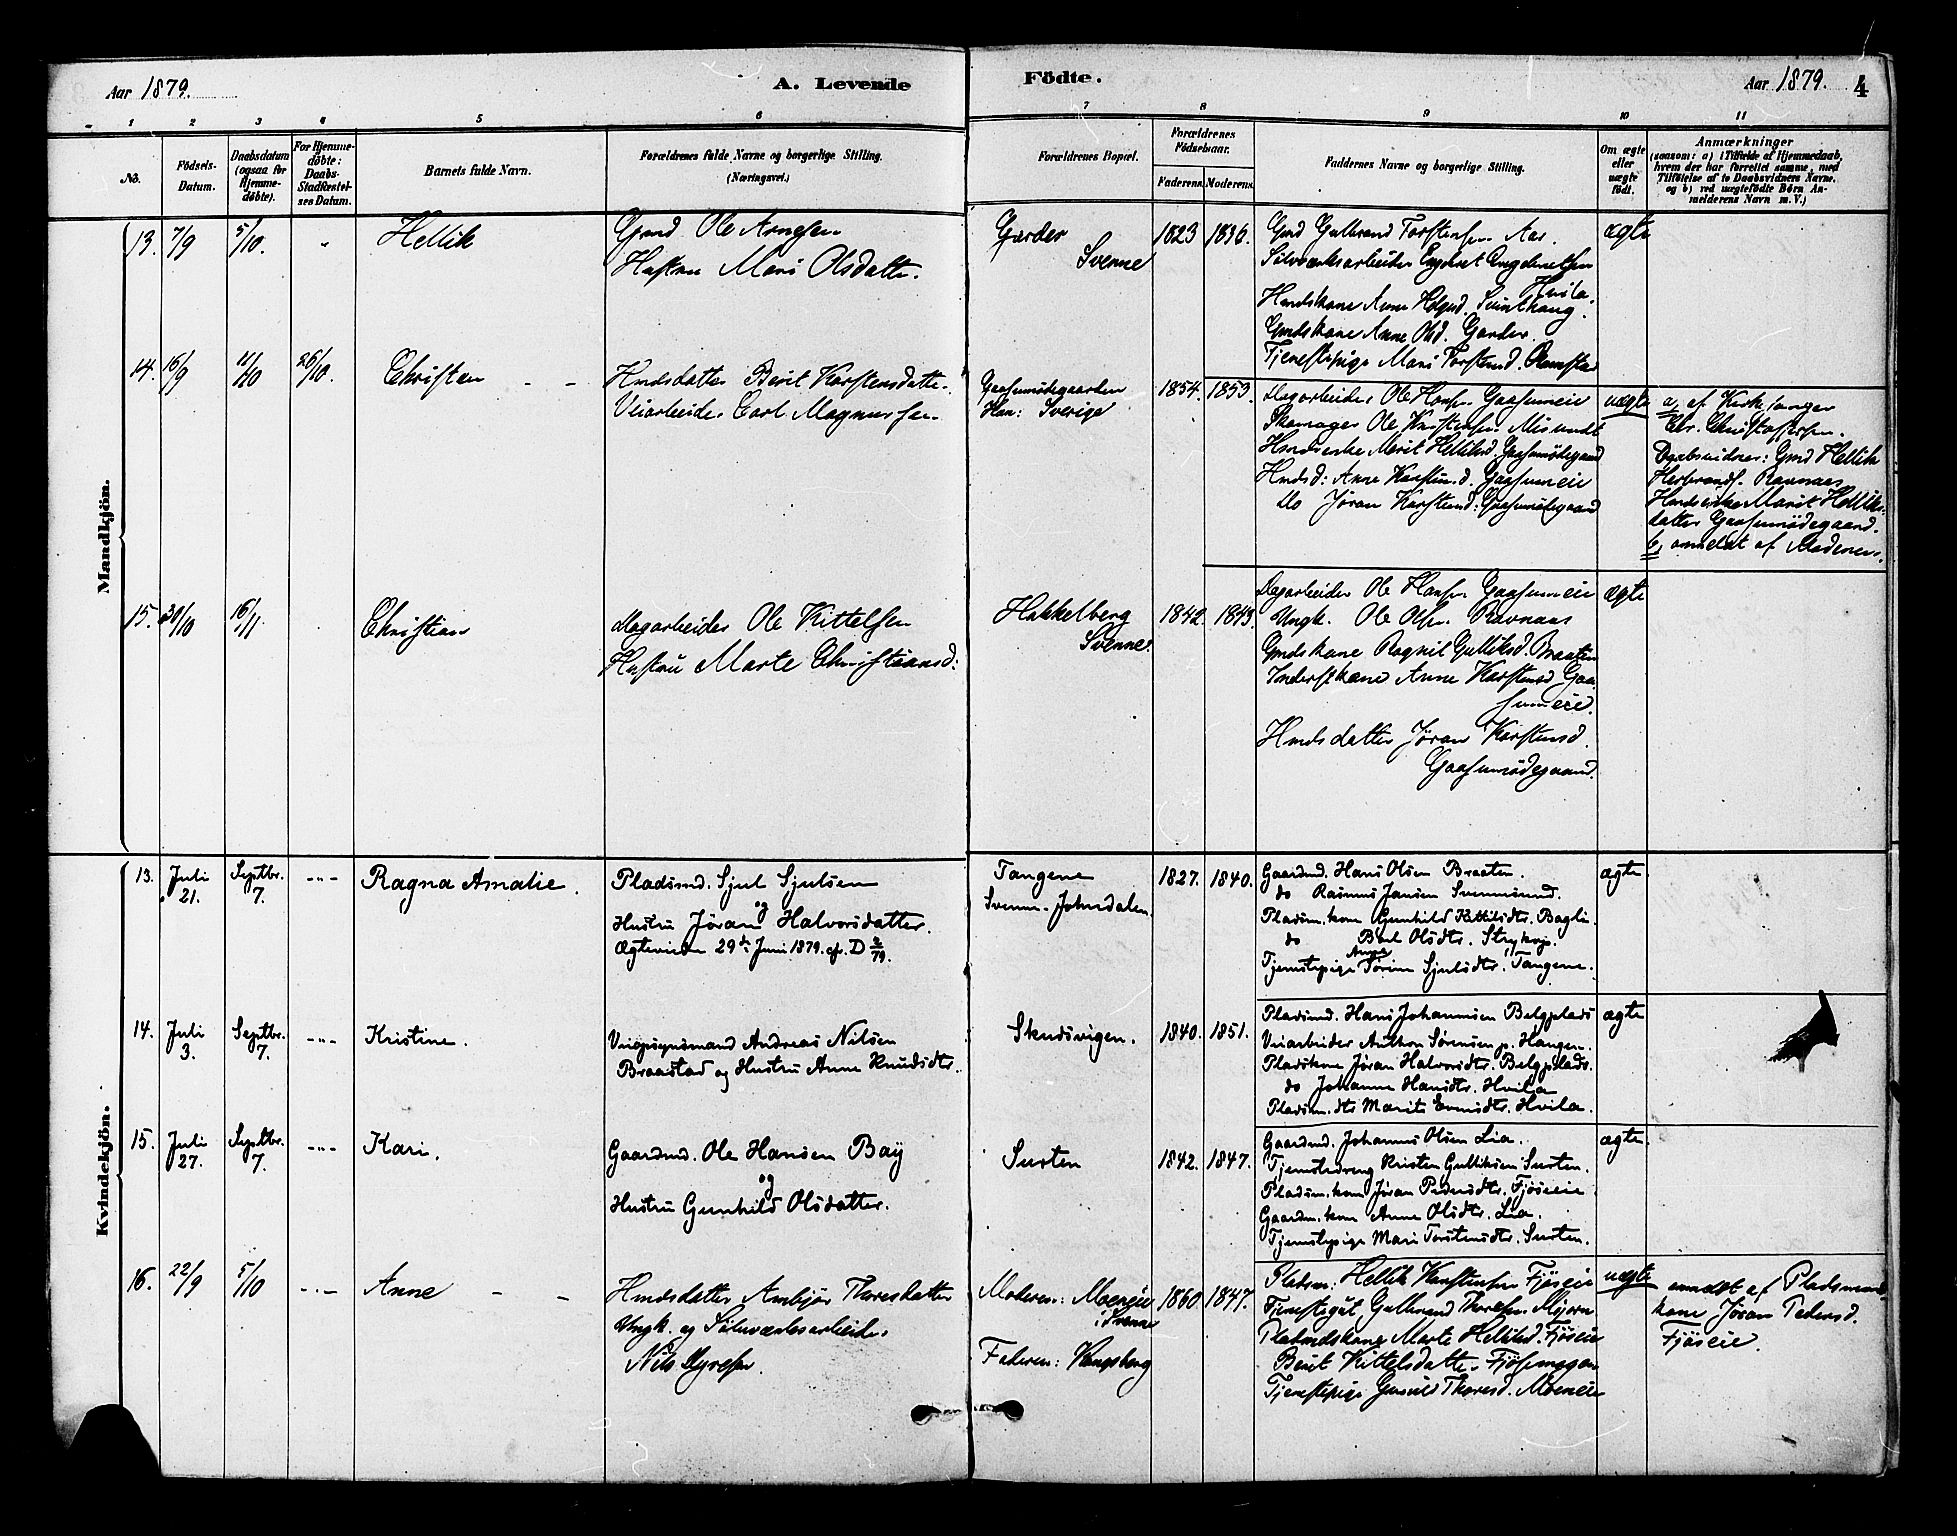 Aar 1879.
A. Levende
Födte.
Aar 1879.
4
1 2 3 4 5 6 7 8 9 10 11
No.
Födsels-Datum.
Daabsdatum (ogsaa for Hjemmedöbte).
For Hjemmedöbte: Daabs-Stadfæstelses Datum.
Barnets fulde Navn.
Forældrenes fulde Navne og borgerlige Stilling. (Næringsvei.)
Forældrenes Bopæl.
Forældrenes Födselsaar.
Faderens. Moderens.
Faddernes Navne og borgerlige Stilling.
Om ægte eller uægte födt.
Anmærkninger
(saasom: a) i Tilfælde af Hjemmedaab,
hvem der har forrettet samme, med
Tilföielse af to Daabsvidners Navne,
og b) ved uægtefödte Börn An-
melderens Navn m. V.)
Mandkjön.
13. 7/9 5/10. "
Hellik
Gmd Ole Arnesen
Hustru Mari Olsdatter.
Garder
Svenne
1823 1836.
Gmd Gulbrand Torstensen Aas.
Sölvverksarbeider Engebret Engebretsen
Hvila.
Gmdskone Anne Olsd. Garder.
Tjenestepige Mari Torstensd.
ægte
14. 16/9 11/10 26/10.
Christen
Hmdsdatter Berit Karstensdatter.
Veiarbeider Carl Magnussen
Gaasumödegaarden
Han: Sverige
1854. 1853.
Dagarbeider Ole Hansen Gaasumeie
Skomager Ole Kristensen Misundt
Hmdsenke Marit Helliksd. Gaasumödegaard
Hmdsd: Anne Karstensd. Gaasumeie
Do Jøran Karstensd: Gaasumödegaard
uægte
a, af Kirkesanger
Chr. Christoffersen.
Daabsvidner: Gmd Hellik
Herbrandsen Ravnaas
Hmdsenke Marit Helliks-
datter Gaasumödegaard.
b, anmeldt af Moderen.
15. 30/10 16/11
Christian
Dagarbeider Ole Kittelsen
Hustru Marte Christiansd:
Hakkelberg
Svenne.
1842. 1843.
Dagarbeider Ole Hansen Gaasumeie
Ungk. Ole Olsen Ravnaas
Gmdskone Ragnil Gulliksd. Braaten
Inderstkone Anne Karstensd Gaa-
sumeie.
Hmdsdatter Jøran Karstensd.
Gaasumödegaard.
ægte
Kvindekjön.
13. Juli 21. Septbr. 7. -"-
Ragna Amalie.
Pladsmd. Sjul Sjulsen
og
Hustru Jøran Halvorsdatter.
Ægteviede 29de Juni 1879. cf. D 2/79.
Tangene
Svenne. Johnsdalen.
1827. 1840.
Gaardmd. Hans Olsen Braaten.
do Rasmus Jansen Svennesund.
Pladsm.kone Gunhild Kittilsdtr. Baglie.
do Berit Olsdtr.
Tjenestepige Anne Tørine Sjulsdtr. Tangene.
ægte
14. Juli 3. Septbr. 7. -"-
Kristine.
Veiopsynsmand Andreas Nilsen
Braastad og Hustru Anne Knudsdtr.
Skudsvigen.
1840. 1851.
Pladsmd. Hans Johannesen Belgplads
Veiarbeider Anthon Sørensen p. Haugen.
Pladskone Jøran Halvorsdtr. Belgplads.
do Johanne Hansdtr. Hvila
Pladsm.dtr Marit Evensdtr. Hvila.
ægte
15. Juli 27. Septbr. 7. -"-
Kari.
Gaardmd. Ole Hansen Bay
og
Hustru Gunhild Olsdatter.
Surten
1842. 1847.
Gaardmd. Johannes Olsen Lia.
Tjenestedreng Kristen Gulliksen Surten.
Pladsm.kone Jøran Pedersdtr. Fjøseie
Gaardm.kone Anne Olsdtr. Lia.
Tjenestepige Mari Torstensdtr. Surten.
ægte
16. 22/9 5/10 -"-
Anne
Hmdsdatter Ambjør Thoresdatter
Ungk. og Sölvverksarbeider
Nils Myresen.
Moderen: Moeneie
i Svenne
Faderen: Kongsberg
1860. 1847.
Pladsm. Hellik Karstensen Fjøseie
Tjenestegut Gulbrand Thoresen Mjørn
Pladsmdskone Marte Helliksd. Fjøseie
Berit Kittelsdatter
Tjenestepige Gunild Thoresd. Moeneie
uægte
anmeldt af Pladsmands-
kone Jøran Pedersd.
Fjøseie.